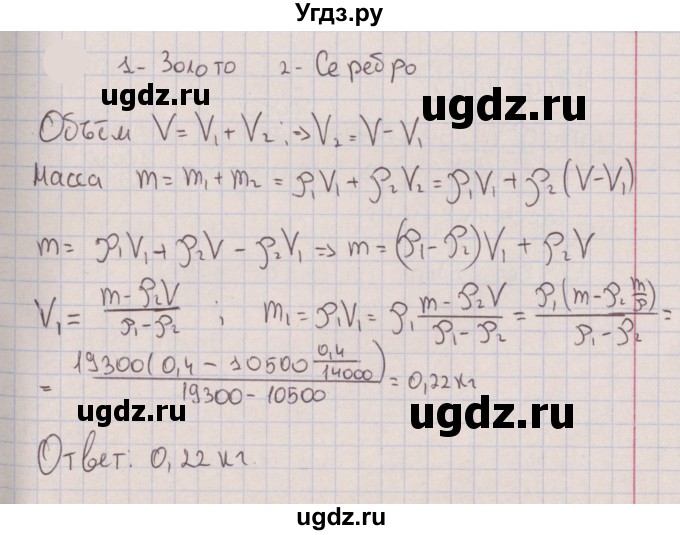 Угдз.ру
1- Золото 2- Серебро
ugdz.ru ugdz.ru
Объём V = V₁ + V₂; ⇒ V₂ = V - V₁
Масса m = m₁ + m₂ = ρ₁V₁ + ρ₂V₂ = ρ₁V₁ + ρ₂(V-V₁)
ugdz.ru ugdz.ru
m = ρ₁V₁ + ρ₂V - ρ₂V₁ ⇒ m = (ρ₁-ρ₂)V₁ + ρ₂V
V₁ = (m-ρ₂V)/(ρ₁-ρ₂) ; m₁ = ρ₁V₁ = ρ₁ (m-ρ₂V)/(ρ₁-ρ₂) = ρ₁(m-ρ₂ m/ρ)/(ρ₁-ρ₂) =
ugdz.ru
= 19300(0,4 - 10500 0,4/14000)/(19300-10500) = 0,22 кг
ugdz.ru ugdz.ru
Ответ: 0,22 кг.
ugdz.ru
ugdz.ru